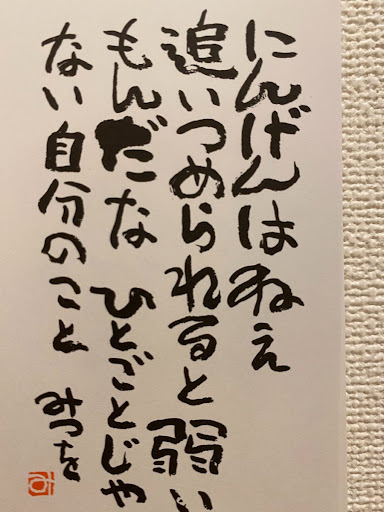 にんげんはねえ
追いつめられると弱い
もんだな ひとごとじゃ
ない自分のこと
みつを